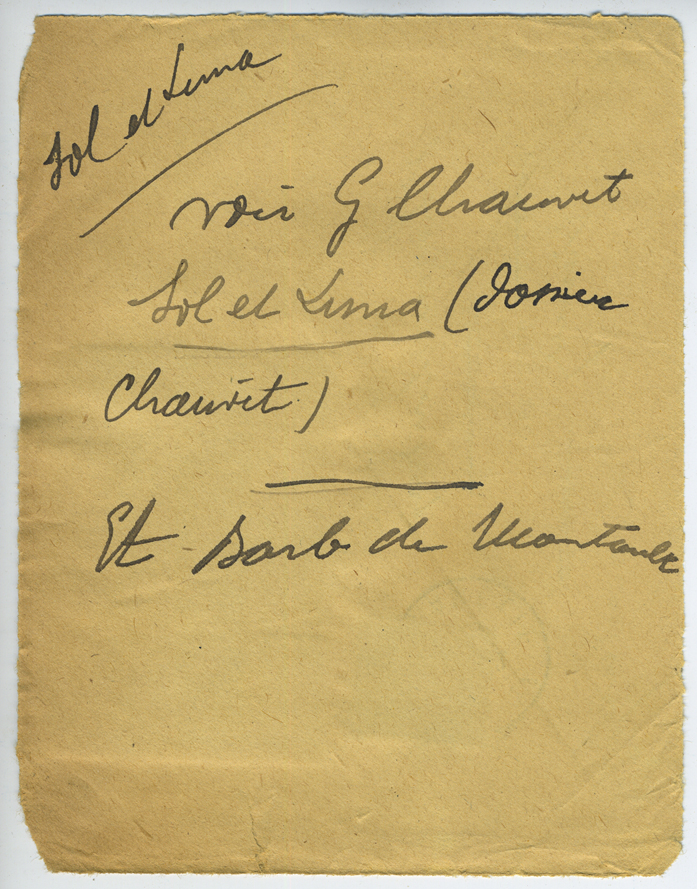 Sol et Luna
voir G Chauvet
Sol et Luna (dossier
Chauvet)
Et Barb de Montault